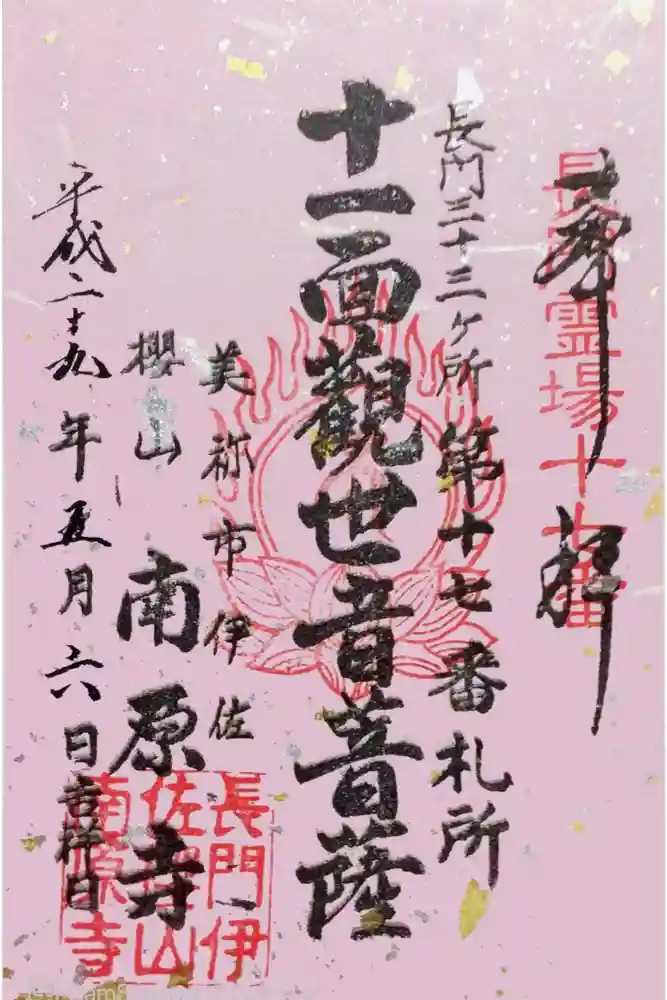 奉拝
長門霊場十七番
長門三十三ヶ所 第十七番札所
十一面觀世音菩薩
美祢市伊佐
櫻山 南原寺
平成二十九年五月六日吉祥日
長門伊
佐櫻山
南原寺